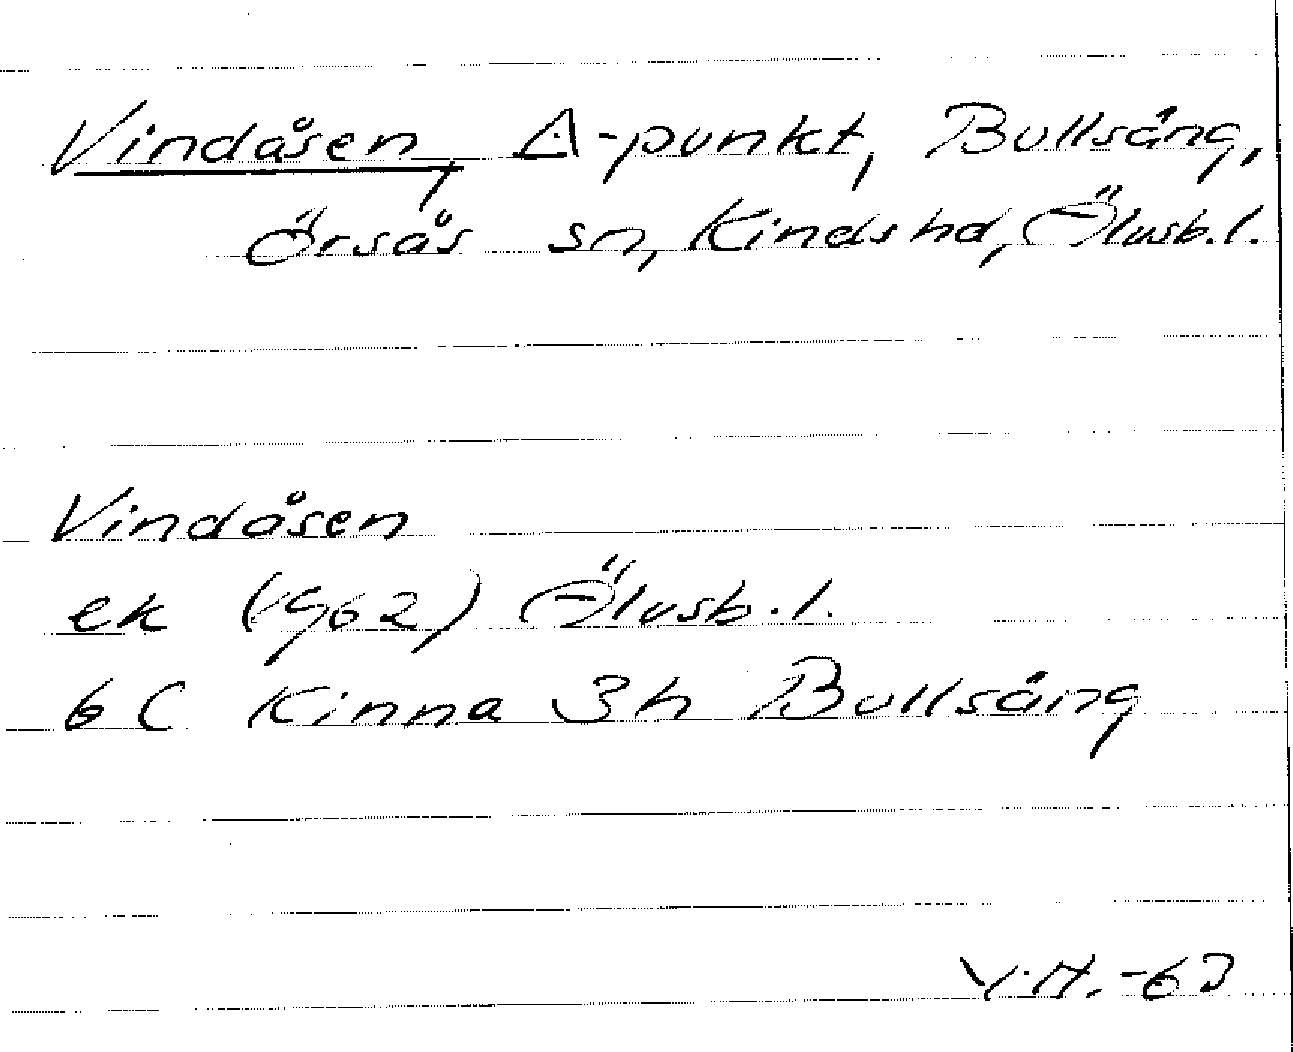 Vindåsen, Δ-punkt, Bullsäng,
Örsås sn, Kinds hd, Älvsb. l.
Vindåsen
ek (1962) Älvsb. l.
6 C Kinna 3h Bullsäng
-63